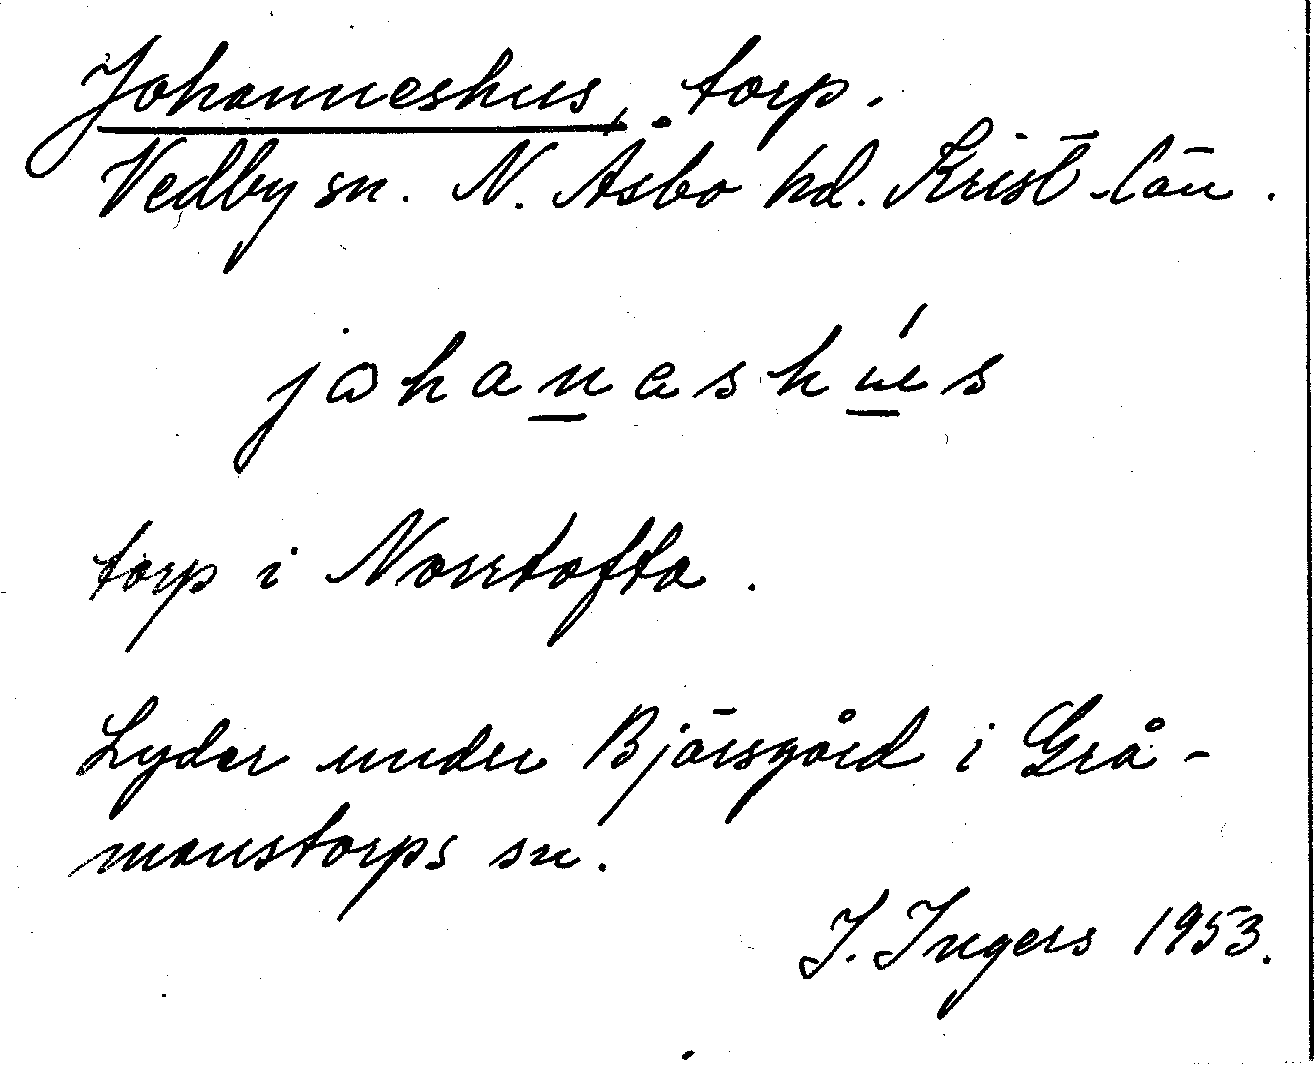 Johanneshus, torp.
Vedby sn. N. Åsbo hd. Krist. län.
johanashús
torp i Norrtofta.
Lyder under Bjärsgård i Grå-
manstorps sn.
I. Ingers 1953.